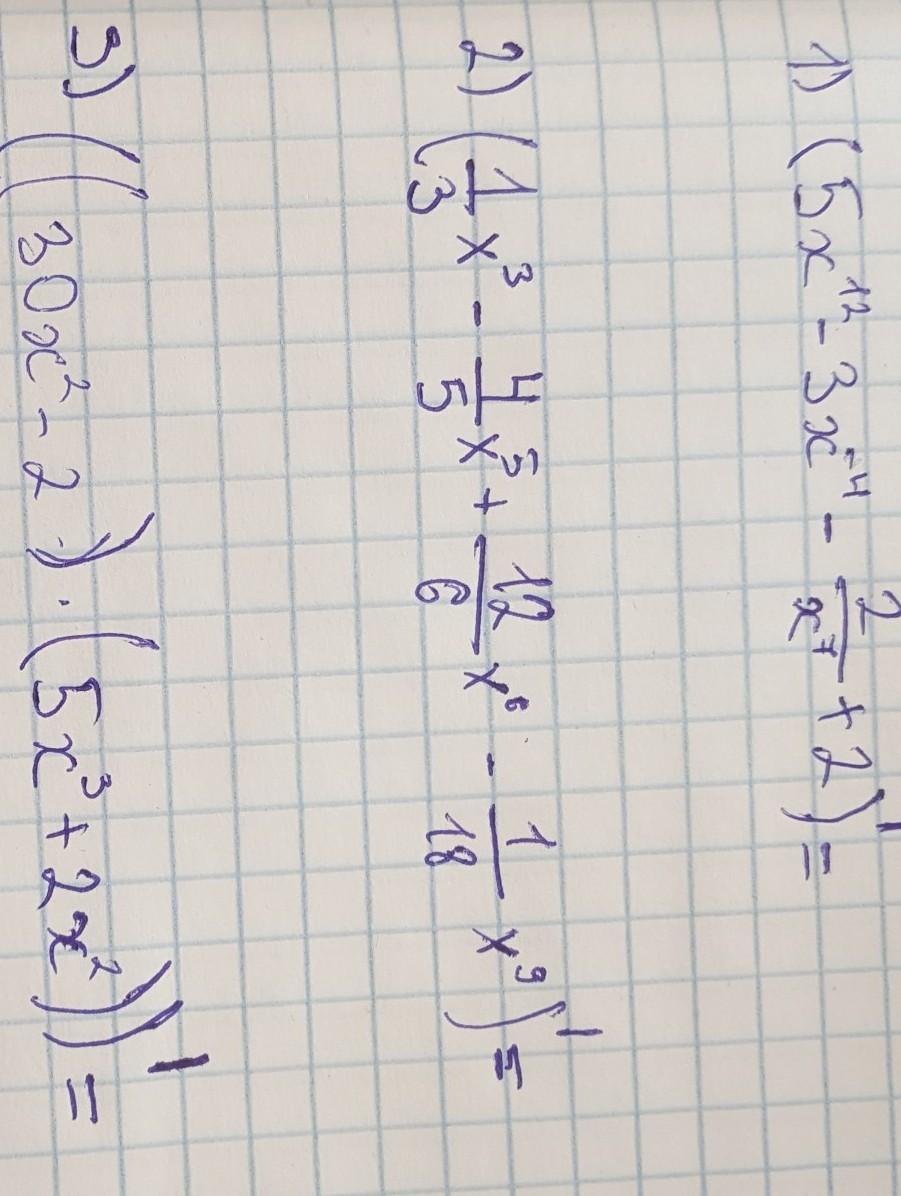 1) (5x¹² - 3x⁻⁴ - 2/x⁷ + 2)' =
2) (1/3 x³ - 4/5 x⁵ + 12/6 x⁶ - 1/18 x⁹)' =
3) ((30x² - 2) · (5x³ + 2x²))' =